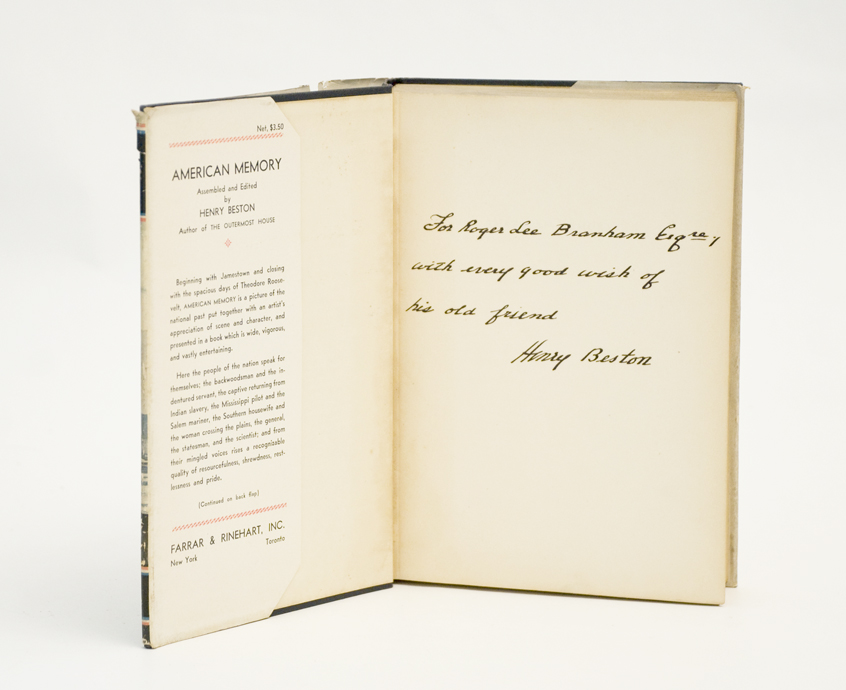 Net, $3.50
AMERICAN MEMORY
Assembled and Edited
by
HENRY BESTON
Author of THE OUTERMOST HOUSE
Beginning with Jamestown and closing
with the spacious days of Theodore Roose-
velt, AMERICAN MEMORY is a picture of the
national past put together with an artist's
appreciation of scene and character, and
presented in a book which is wide, vigorous,
and vastly entertaining.
Here the people of the nation speak for
themselves; the backwoodsman and the in-
dentured servant, the captive returning from
Indian slavery, the Mississippi pilot and the
Salem mariner, the Southern housewife and
the woman crossing the plains, the general,
the statesman, and the scientist; and from
their mingled voices rises a recognizable
quality of resourcefulness, shrewdness, rest-
lessness and pride.
[Continued on back flap]
FARRAR & RINEHART, INC.
New York Toronto
For Roger Lee Branham Esqre,
with every good wish of
his old friend
Henry Beston